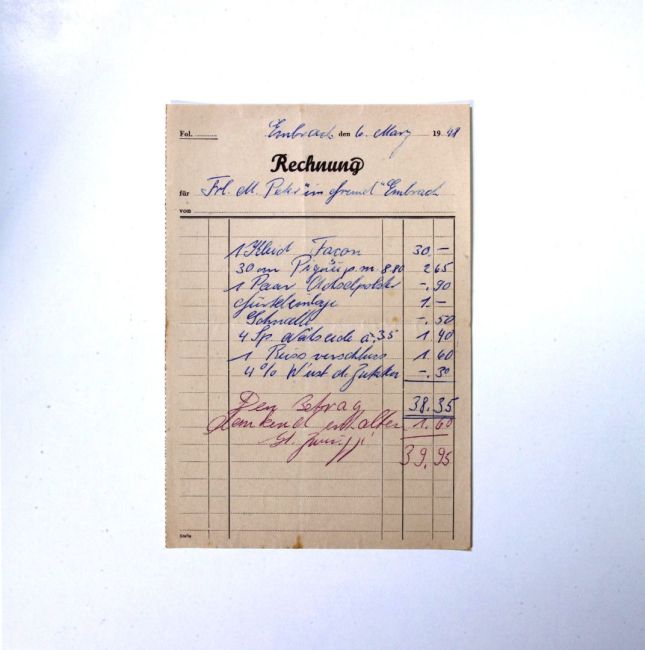 Fol.
Embrach den 6. März 1948
Rechnung
für Frl. M. Peter "im Embrach
von
1 Kleid Façon 30.–
30 cm Piqué p. m. 8.80 2 65
1 Paar Achselpolster –.90
Gürteleinlage 1.–
Schnalle –.50
4 Sp. Nähseide à –.35 1 40
1 Reissverschluss 1.60
4% Wust d. Zutaten –.30
38.35
Den Betrag
dankend erhalten 1.60
39.95